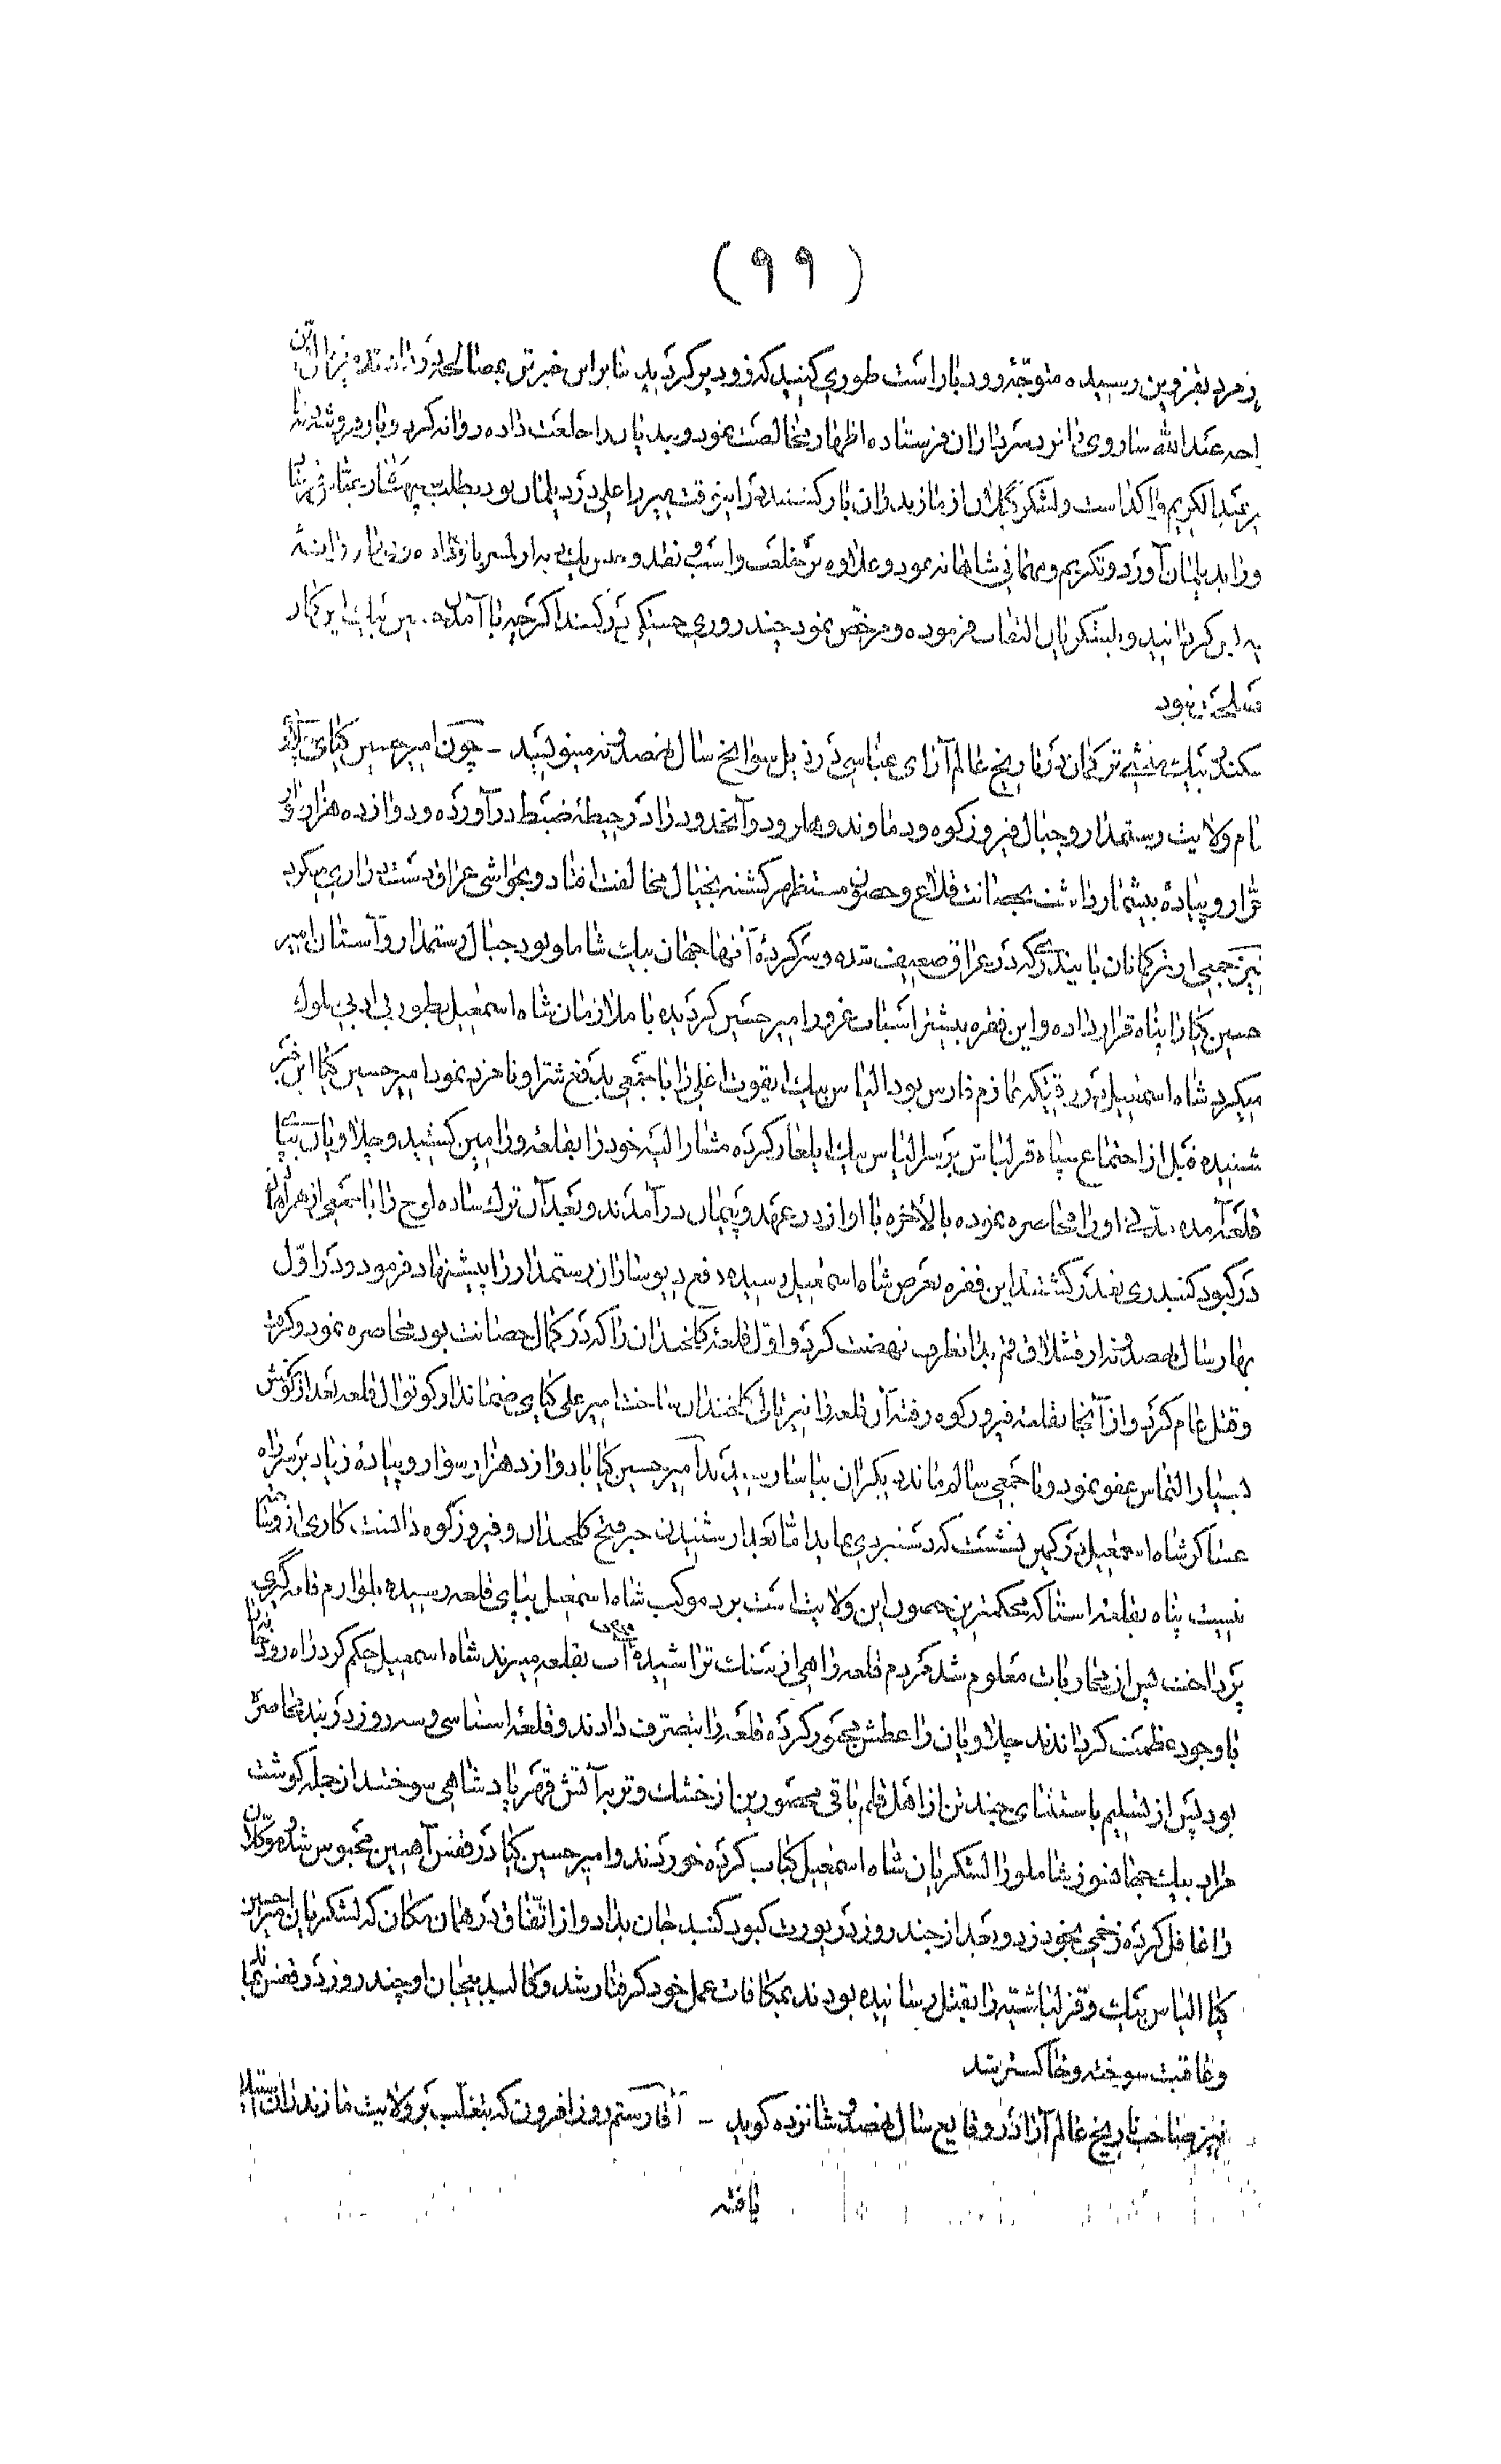 (۹۹)
بقزوین رسیده متوجّه رودبار است طوری کنید که زود برگردید بنابراین خبر
عبدالله ساروی را نزد سرداران فرستاده اظهار مخالصت نمود و بدیشان را خلعت داده روانه کرد و
عبدالکریم واگذاشت و لشکر گیلان از مازندران بازگشتند در اینوقت میرزا علی در دیلمان بود بطلب
را بدیلمان آورد و تکریم و مهمانی شاهانه نمود و علاوه بر خلعت و اسب و نقد
گردانید و بلشکریان التفات فرموده و مرخص نمود چند روزی
نبود
بیک منشی ترکمان در تاریخ عالم آرای عباسی در ذیل سوانح سال نهصد و نه مینویسد - چون امیر حسین کیای
تمام ولایت رستمدار و جبال فیروزکوه و دماوند و هلرود و آنحدود را در حیطهٔ ضبط درآورده و دوازده هزار
و پیادهٔ بیشمار داشت بحصانت قلاع و حصون مستظهر گشته بخیال مخالفت افتاد و بحواشی عراق دست درازی میکرد
نیز جمعی از ترکمانان بایندری که در عراق ضعیف شده و سرکردهٔ آنها جهان بیک شاملو بود جبال رستمدار و آستان امیر
حسین کیا را پناه قرار داده و این فقره بیشتر اسباب غرور امیر حسین گردیده با ملازمان شاه اسمعیل بطور بی ادبی سلوک
میکرد شاه اسمعیل در وقتیکه عازم فارس بود الیاس بیک ایقوت اغلی را با جمعی بدفع شرّ او نامزد نمود امیر حسین کیا این خبر
شنیده قبل از اجتماع سپاه قزلباش بر سر الیاس بیک ایلغار کرده مشار الیه خود را بقلعهٔ ورامین کشید و چلاویان بپای
قلعه آمده مدّتی او را محاصره نموده بالاخره با او از در عهد و پیمان درآمدند و بعد آن ترک ساده لوح را با جمعی از همراهان
در کبود گنبد ری بغدر کشتند این فقره بعرض شاه اسمعیل رسیده دفع دیوساران رستمدار را پیشنهاد فرمود و در اوّل
بهار سال نهصد و نه از قشلاق قم بدانطرف نهضت کرد و اوّل قلعه گلخندان را که در کمال حصانت بود محاصره نمود و گرفت
و قتل عام کرد و از آنجا بقلعهٔ فیروزکوه رفته آن قلعه را نیز ثانی گلخندان ساخت امیر علی کیای ضماندار کوتوال قلعه بعد از کوشش
بسیار التماس عفو نمود و با جمعی سالم مانده دیگران بیاسا رسیدند امیر حسین کیا با دوازده هزار سوار و پیادهٔ زیاد بر سر راه
عساکر شاه اسمعیل در کمین نشست که دستبردی نماید امّا بعد از شنیدن خبر فتح گلخندان و فیروزکوه دانست کاری از پیش
نیست پناه بقلعهٔ استا که محکمترین حصون این ولایت است برد موکب شاه اسمعیل بپای قلعه رسیده بلوازم قلعه گیری
پرداخت پس از محاربات معلوم شد مردم قلعه راهی از سنگ تراشیده آب بقلعه میبرند شاه اسمعیل حکم کرد راه رودخانه
با وجود عظمت گرداندند چلاویان را عطش مجبور کرده قلعه را بتصرّف دادند و قلعهٔ استا سی و سه روز در بند محاصره
بود پس از تسلیم باستثنای چند تن از اهل قلم باقی محصورین از خشک و تر به آتش قهر پادشاهی سوختند از جمله گوشت
مراد بیک جهانسوز شاملو را لشکریان شاه اسمعیل کباب کرده خوردند و امیر حسین کیا در قفس آهنین محبوس شده موکلان
را غافل کرده زخمی بخود زد و بعد از چند روز در یورت کبود گنبد جان بداد و از اتّفاق در همان مکان که لشکریان امیر حسین
کیا الیاس بیک و قزلباشیه را بقتل رسانیده بودند بمکافات عمل خود گرفتار شد و کالبد بیجان او چند روز در قفس
و عاقبت سوخته و خاکستر شد
نیز صاحب تاریخ عالم آرا در وقایع سال نهصد و شانزده گوید - آقا رستم روزافزون که بتغلّب بر ولایت مازندران استیلا
یافته